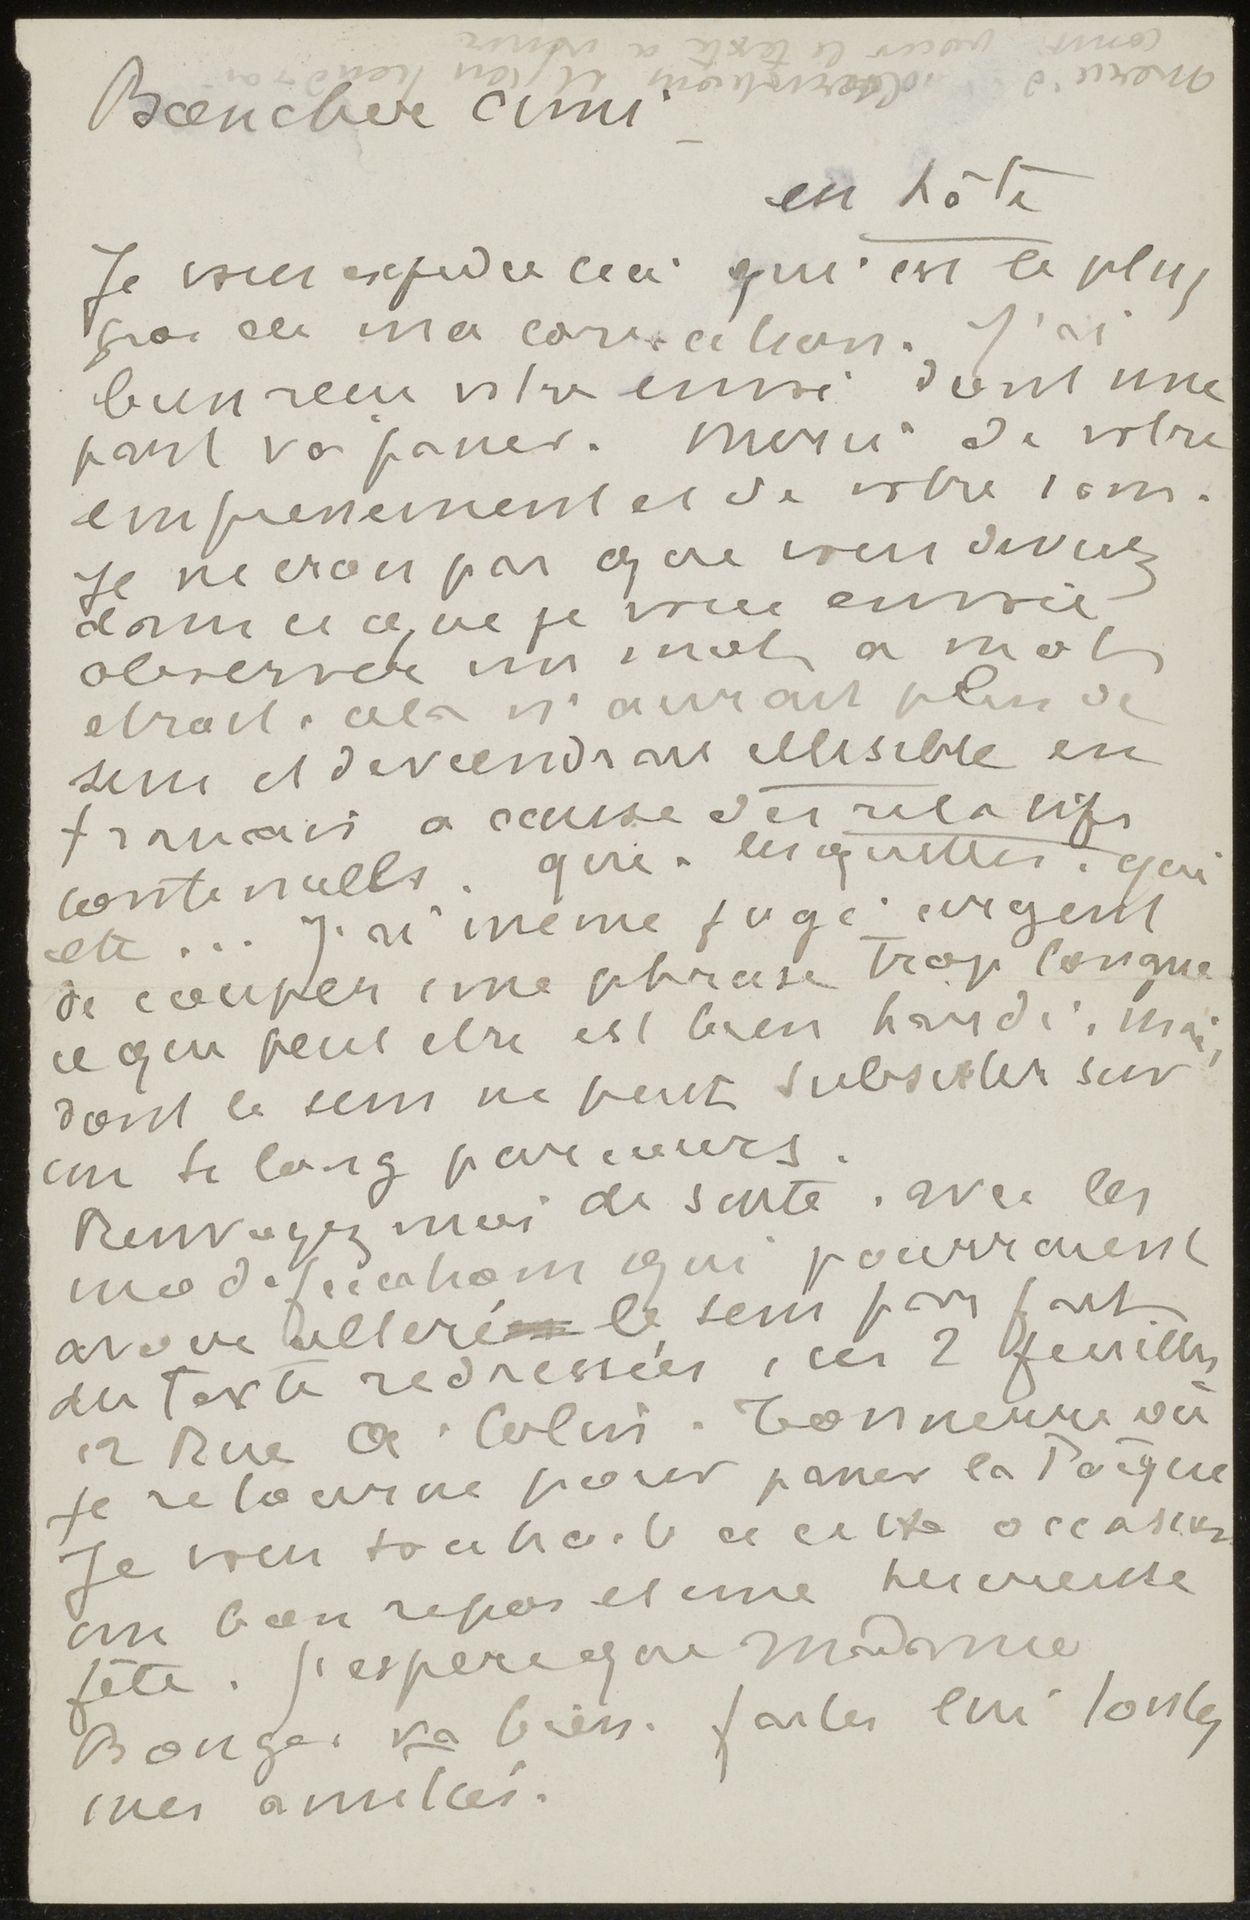 Bon cher ami
en hâte
Je vous expedie ceci qui est le plus
gros de ma correction. J'ai
bien recu votre envoi dont une
part va passer. Merci de votre
empressement et de votre soin.
Je ne crois pas que vous deviez
dans ce que je vous envoie
observer un mot a mot
etroit. cela n'aurait plus de
sens et deviendrait illisible en
francais a cause des relatifs
continuels. que. lesquelles. qui
etc... J'ai même jugé urgent
de couper une phrase trop longue
ce qui peut etre est bien hardi. mais
dont le sens ne peut subsister sur
un si long parcours.
Renvoyez moi de suite. avec les
modifications qui pourraient
avoir alteré le sens par fait
du Texte redressées, ces 2 feuilles
12 Rue A. Colin. Tonnerre où
je retourne pour passer la Pâque
Je vous souhaite a cette occasion
un bon repos et une heureuse
fête. J'espere que Madame
Bonger va bien. faites lui toutes
mes amitiés.